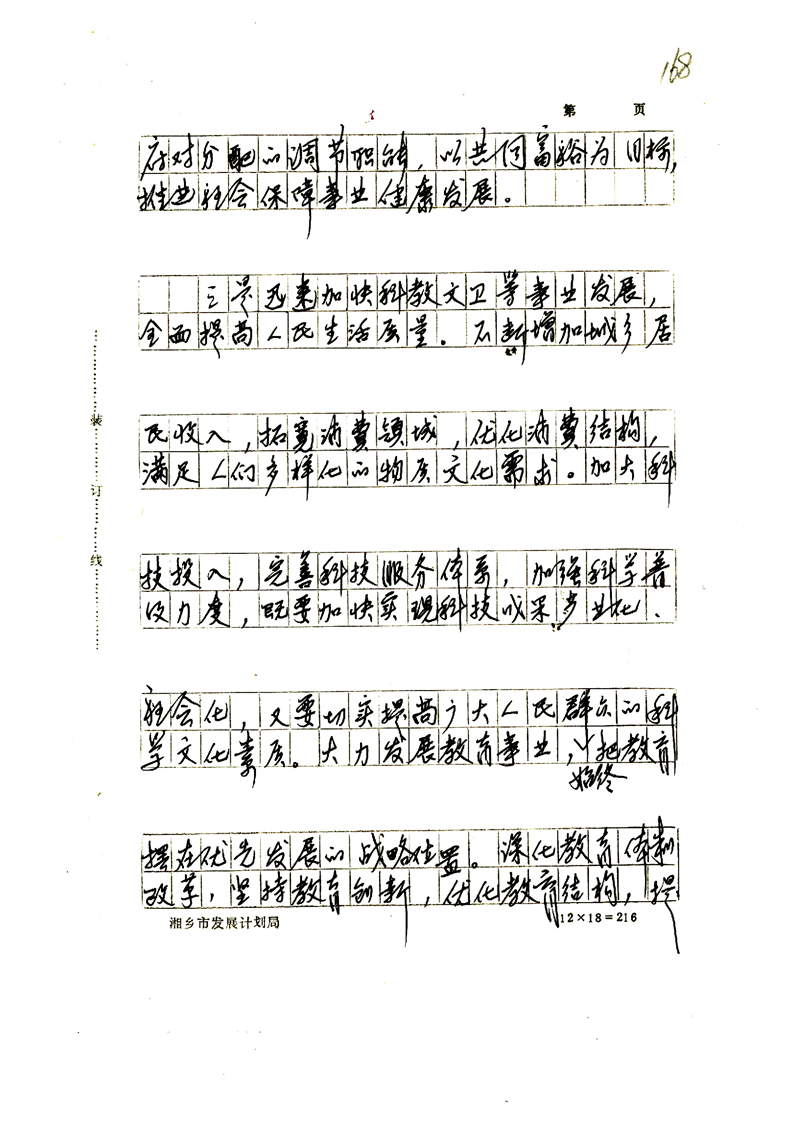 168
第 页
府对分配的调节职能，以共同富裕为目标，
推进社会保障事业健康发展。
三是迅速加快科教文卫等事业发展，
全面提高人民生活质量。不断增加城乡居
民收入，拓宽消费领域，优化消费结构，
满足人们多样化的物质文化需求。加大科
技投入，完善科技服务体系，加强科学普
及力度，既要加快实现科技成果产业化、
社会化，又要切实提高广大人民群众的科
学文化素质。大力发展教育事业，始终把教育
摆在优先发展的战略位置。深化教育体制
改革，坚持教育创新，优化教育结构，提
装订线
湘乡市发展计划局 12×18=216